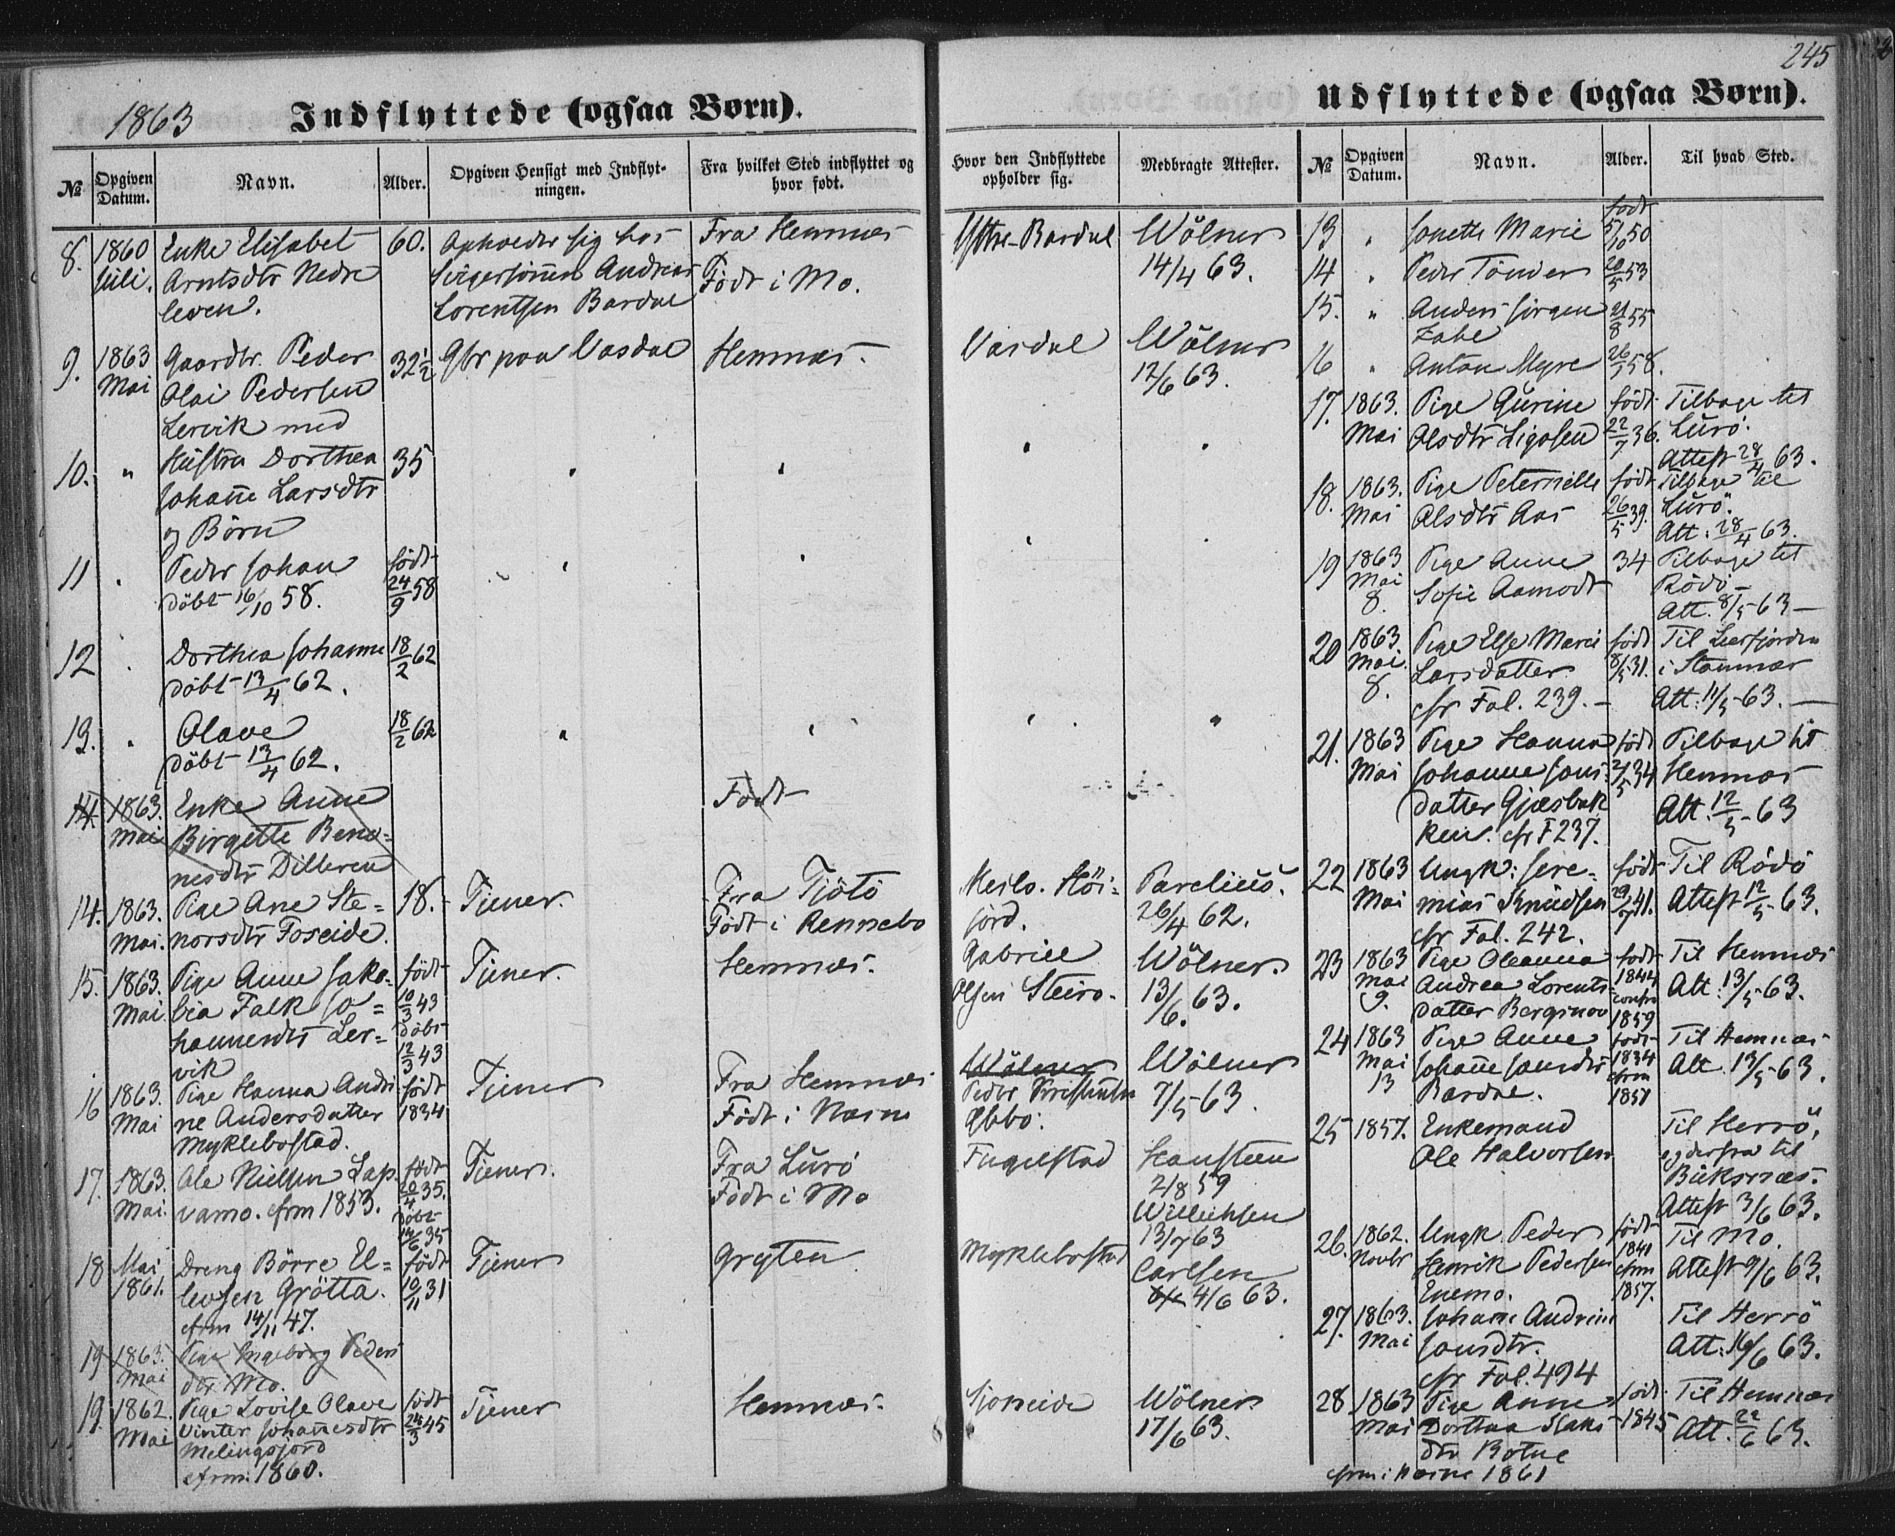 245
1863
Indflyttede (ogsaa Børn).
№
Opgiven Datum.
Navn.
Alder.
Opgiven Hensigt med Indflyt-
ningen.
Fra hvilket Sted indflyttet og
hvor født.
Hvor den Indflyttede
opholder sig.
Medbragte Attester.
8. 1860 Enke Elisabet 60. opholder sig hos Fra Hemnæs Ystre-Bardal Wölner
Juli. Arntsdtr Nedre Svigersönnen Andreas Født i Mo. 14/4 63.
leven. Lorentsen Bardal
9. 1863 Gaardbr. Peder 32 1/2 Gbr paa Vasdal Hemnæs. Vasdal Wölner
Mai Olai Pedersen 12/6 63.
Lervik med
10. " Hustru Dorthea 35 " " " "
Johane Larsdtr
og Börn
11 " Peder Johan födt " " " "
döbt 16/10 58. 24/9 58
12 " Dorthea Johanne 18/2 62
döbt 13/4 62.
13. " Olave 18/2 62 " " " "
döbt 13/4 62.
14. 1863. Enke Anne Födt
Mai Birgette Beno=
nisdtr Dilkeren
14. 1863. Pige Ane Ste= 18. Tjener. Fra Tjötö Höi= Parelius.
Mai. norsdtr Foseide. Födt i Rennebo fjord. 26/4 62.
15. 1863. Pige Anne Jako= födt Tjener. Hemnæs. Gabriel Wölner.
Mai. bia Falk Jo= 10/3 43 Olsen Steiro. 13/6. 63.
hannesdtr Ler= döbt
vik 12/3 43
16 1863. Pige Hanna Andri födt Tjener Fra Hemnæs Wölner Wölner
Mai ne Andersdatter 1834 Födt i Næsne Peder Kristensen 7/5 63.
Myklebostad. Æbbo.
17. 1863. Ole Nielsen Lap. födt Tjener. Fra Lurö Fugelstad Hansteen
Mai. vamo. cfrm 1853. 20/4 35. Födt i Mo 2/8 59
döbt Willichsen
14/6 35 13/7 63
18 Mai Dreng Börre El= födt Tjener Gryten Myklebostad Carlsen
1861. levsen Grötta. 10/11 31 4/6 63.
cfrm 14/11 47.
19 1863. Pige Ingeborg Peders
Mai dtr Mo.
19. 1862. Pige Lovise Olave födt Tjener Hemnæs. Sjoneide Wölner
Mai Vinter Johanesdtr 24/3 45 17/6 63.
Melingsfjord
cfrm. 1860.
Udflyttede (ogsaa Børn).
№
Opgiven Datum.
Navn.
Alder.
Til hvad Sted.
13 " Jonette Marie født 5/10 50
14 " Peder Tönder 20/5 53
15. " Anders Jörgen 21/8 55
Zahe
16 " Anton Myre 26/1 58.
17. 1863. Pige Gurine födt Tilbage til
Mai Olsdtr Ligosen 22/7 36. Lurö.
Attest 28/4 63.
18. 1863. Pige Peternille födt Tilbage til
Mai Olsdtr Aas 26/5 39. Lurö.
Att. 28/4 63.
19 1863 Pige Anne 34 Tilbage til
Mai Sofie Aamodt Rödö
8. Att. 8/5 63
20 1863. Pige Else Marie födt Til Leerfjorden
Mai. Larsdatter 8/5 31. i Stamnæs
8. cfr Fol. 239. Att: 11/5 63.
21. 1863 Pige Hanna födt Tilbage til
Mai Johanne Jons 2/5 34 Hemnæs
datter Gjæsbak Att. 12/5 63
ken. cfr F 237.
22 1863 Ungk: Jere= födt Til Rödö
Mai mias Knudsen 29/7 41. Attest 12/5 63.
cfr Fol. 242.
23 1863 Pige Oleanna födt Til Hemnæs
Mai Andrea Lorents 1844 Att: 13/5 63.
9. datter Bergsnov confr 1859
24 1863 Pige Anne födt Til Hemnæs
Mai Johane Jonsdtr 1834 Att. 13/5 63.
13 Bardal. cfrm 1851
25 1857. Enkemand Til Herrö,
Ole Halvorsen og derfra til
Buksnæs.
Attest 3/6 63.
26. 1862. Ungk Peder födt Til Mo.
Novbr Henrik Pedersen 1841 Attest 9/6 63.
Enemo. cfrm 1857.
27. 1863. Johane Andrine Til Herrö
Mai Jonsdtr. Att: 16/6 63.
cfr Fol. 494
28 1863 Pige Anne födt Til Hemnæs
Mai Dorthea Isaks 1845 Att. 22/6 63.
dtr Botne
cfrm i Næsne 1861